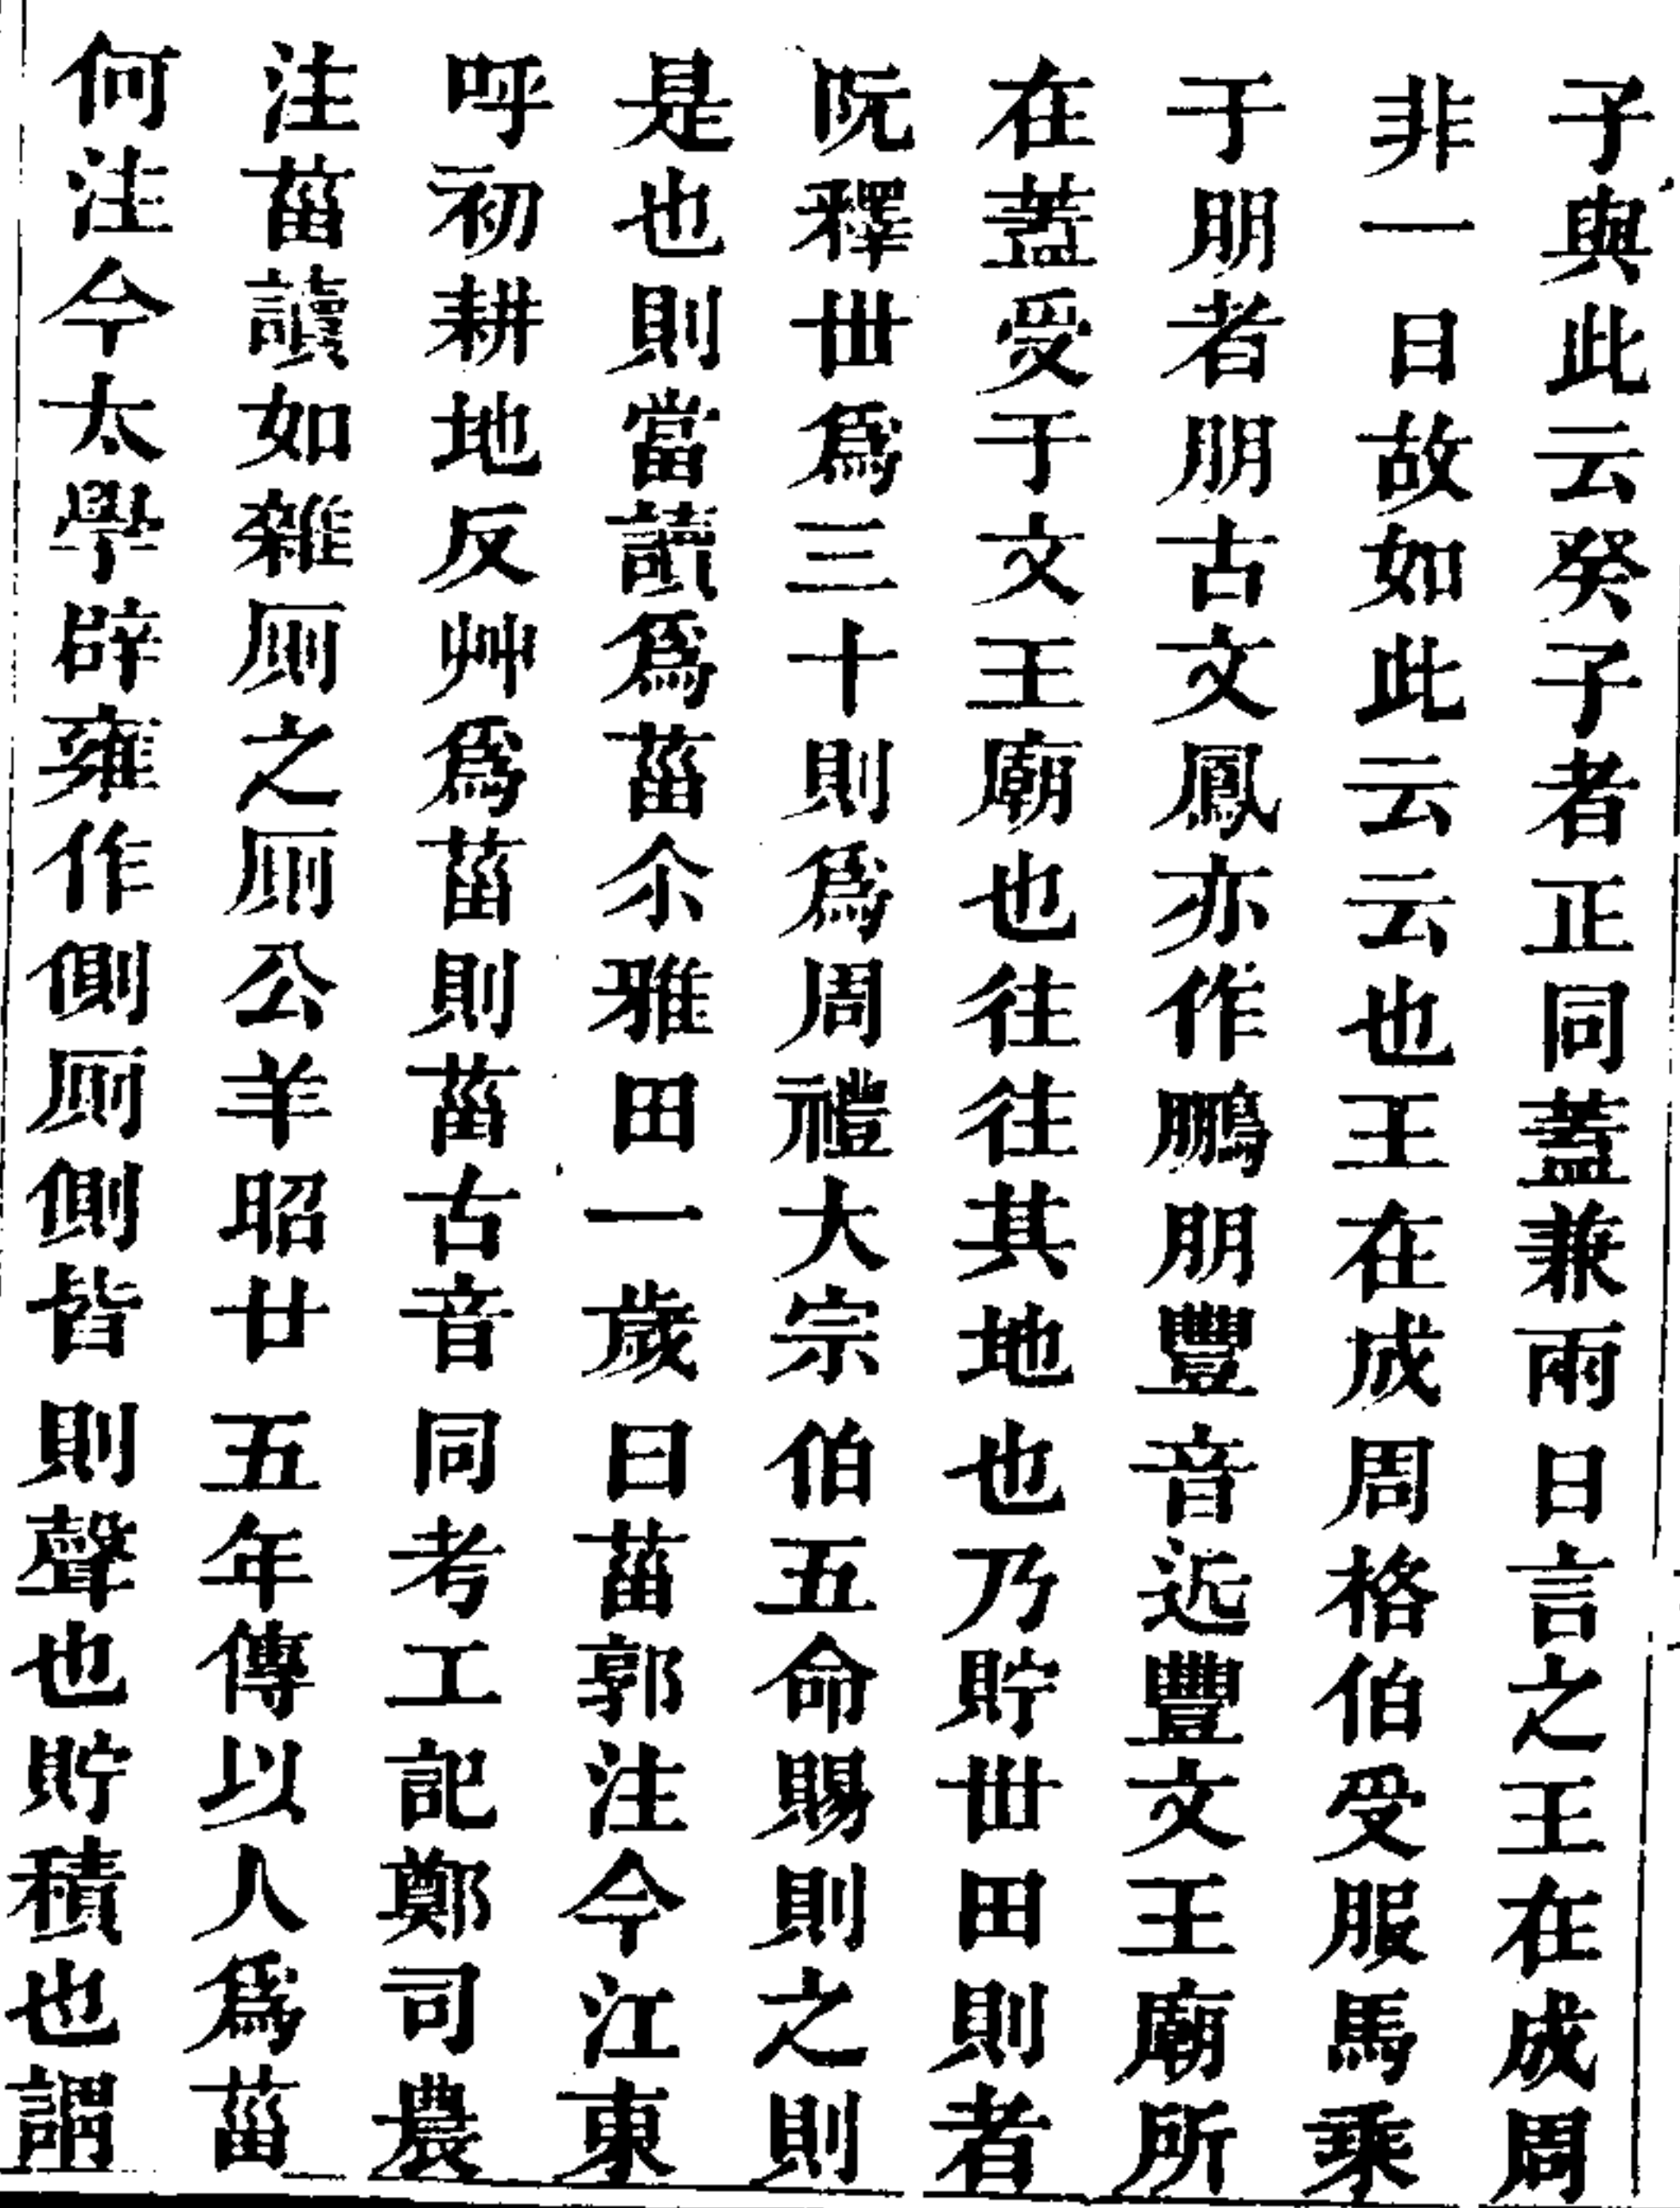 子與此云癸子者正同蓋兼兩日言之王在成周
非一日故如此云云也王在成周格伯受服馬乘
于朋者朋古文鳳亦作鵬朋豐音近豐文王廟所
在蓋受于文王廟也往往其地也乃貯丗田則者
阮釋丗爲三十則爲周禮大宗伯五命賜則之則
是也則當讀爲菑尒雅田一歲曰菑郭注今江東
呼初耕地反艸爲菑則菑古音同考工記鄭司農
注菑讀如雜厠之厠公羊昭廿五年傳以人爲菑
何注今太學辟雍作側厠側皆則聲也貯積也謂